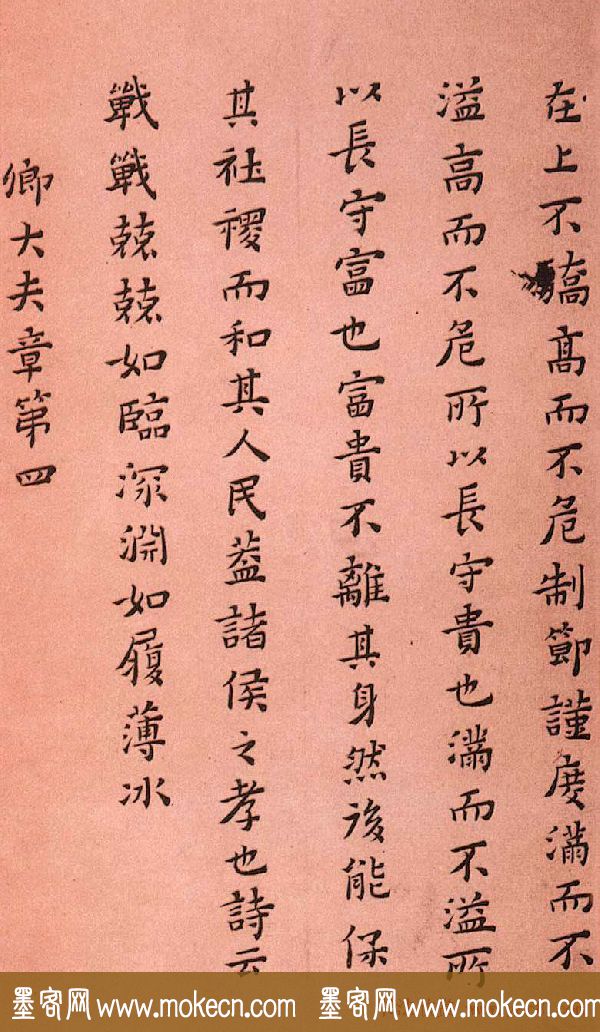 在上不驕高而不危制節謹度滿而不
溢高而不危所以長守貴也滿而不溢所
以長守富也富貴不離其身然後能保
其社稷而和其人民蓋諸侯之孝也詩云
戰戰兢兢如臨深淵如履薄冰
卿大夫章第四
墨客网 www.mokecn.com 墨客网 www.mokecn.com